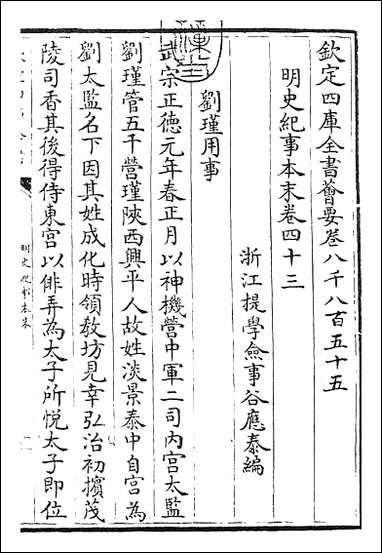 欽定四庫全書薈要卷八千八百五十五
明史紀事本末卷四十三
浙江提學僉事谷應泰編
劉瑾用事
武宗正德元年春正月以神機營中軍二司內官太監
劉瑾管五千營瑾陜西興平人故姓淡景泰中自宫為
劉太監名下因其姓成化時領教坊見幸弘治初擯茂
陵司香其後得侍東宫以俳弄為太子所悅太子即位
明史紀事本末